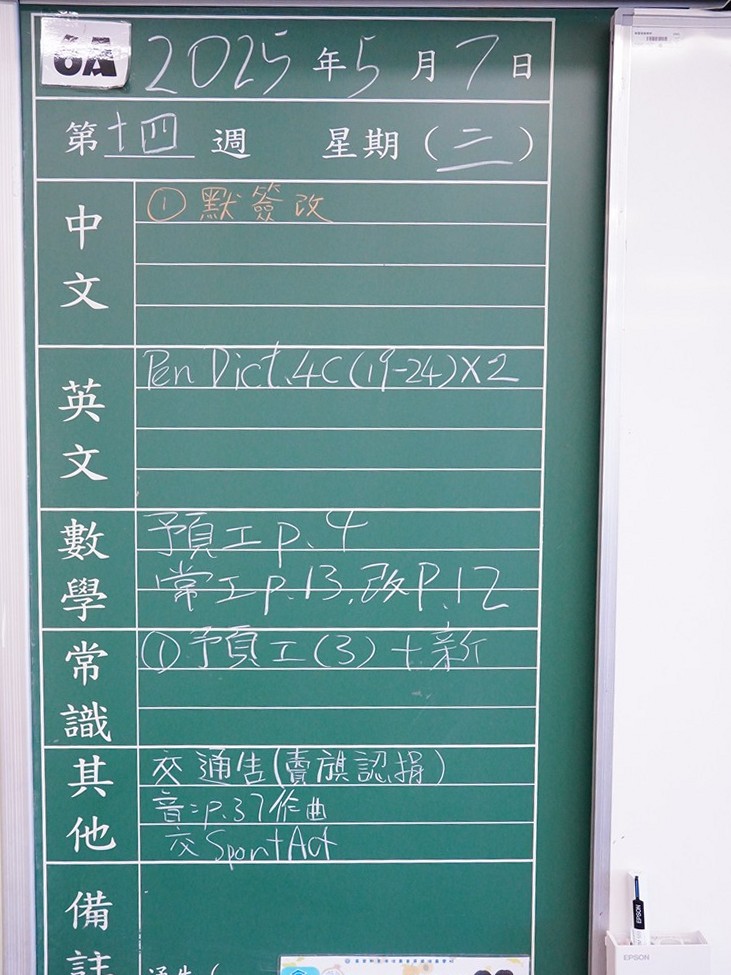 6A 2025年5月7日
第十四週 星期(三)
中文
①默簽改
英文
Pen Dict. 4C (19-24)×2
數學
預工 p. 4
常工 p. 13, 改P. 12
常識
①預工(3)+新
其他
交通告(賣旗認捐)
音:p.37作曲
交 SportAct
備註
通告(
EPSON
EPSON